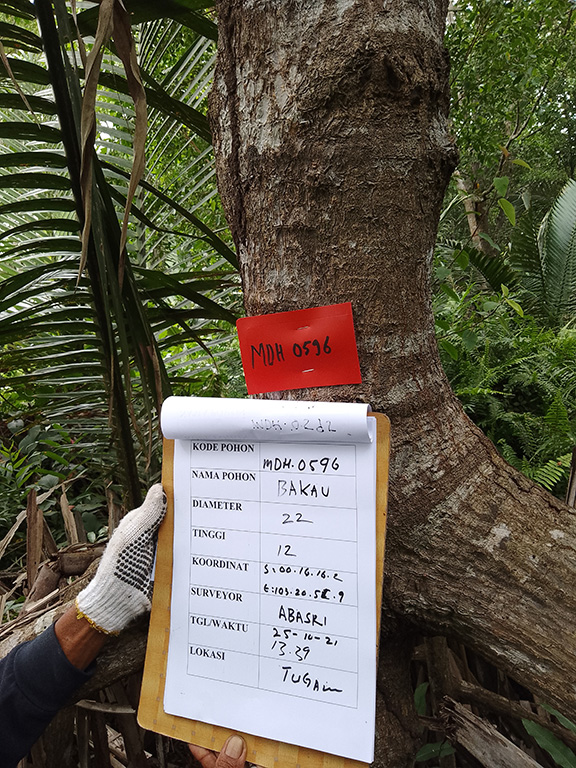 MDH 0596
KODE POHON MDH.0596
NAMA POHON BAKAU
DIAMETER 22
TINGGI 12
KOORDINAT S:00.16.16.2
SURVEYOR ABASRI
TGL/WAKTU 25-10-21
13.39
LOKASI